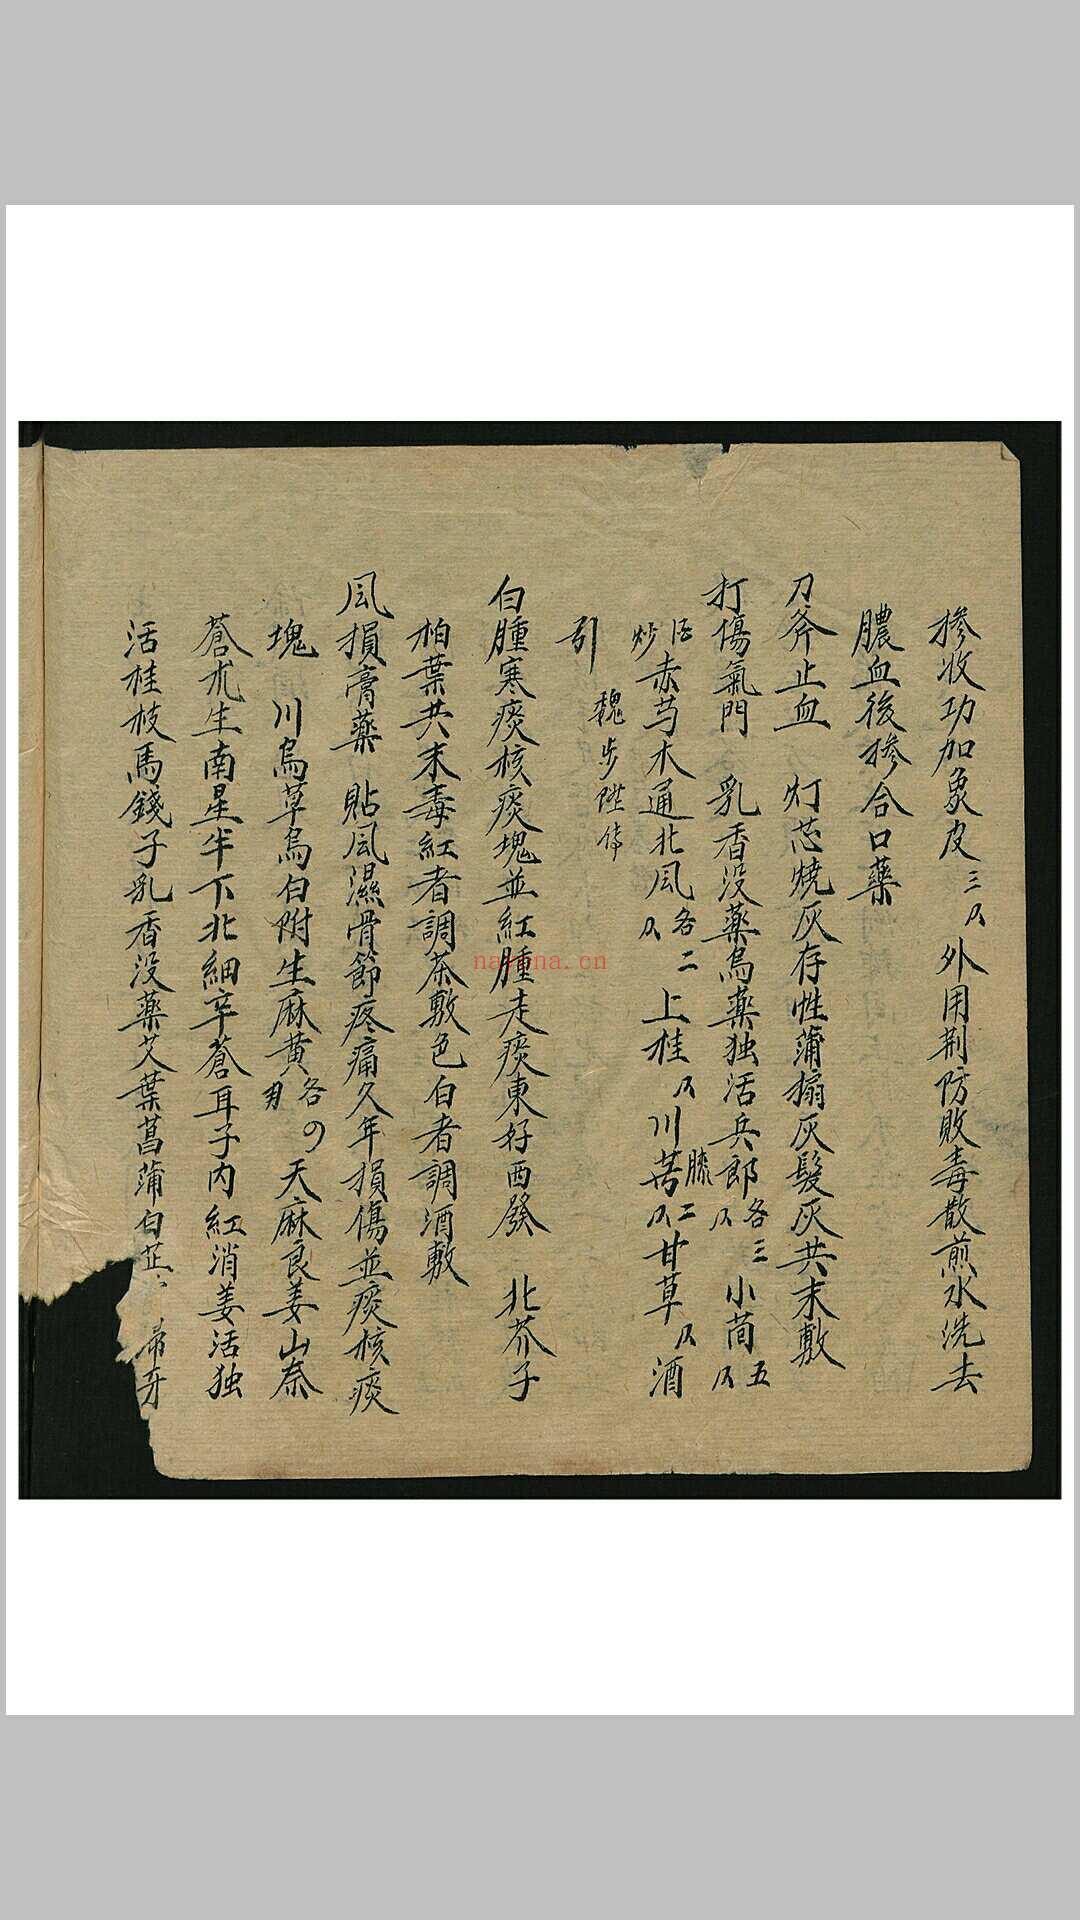 摻收功加象皮三𠆤外用荆防敗毒散煎水洗去
膿血後摻合口藥
刀斧止血 灯芯燒灰存性蒲搧灰髮灰共末敷
打傷氣門 乳香没藥烏藥独活兵郎各三小茴五
炒赤芍木通北風各二上桂川芎二甘草酒
引 魏步陞傳
白腫寒痰核痰塊並紅腫走痰東好西發 北芥子
柏葉共末毒紅者調茶敷色白者調酒敷
風損膏藥 貼風濕骨節疼痛久年損傷並痰核痰
塊 川烏草烏白附生麻黄各天麻良姜山奈
蒼朮生南星半下北細辛蒼耳子内紅消姜活独
活桂枝馬錢子乳香没藥艾葉菖蒲白芷牙
nayona.cn